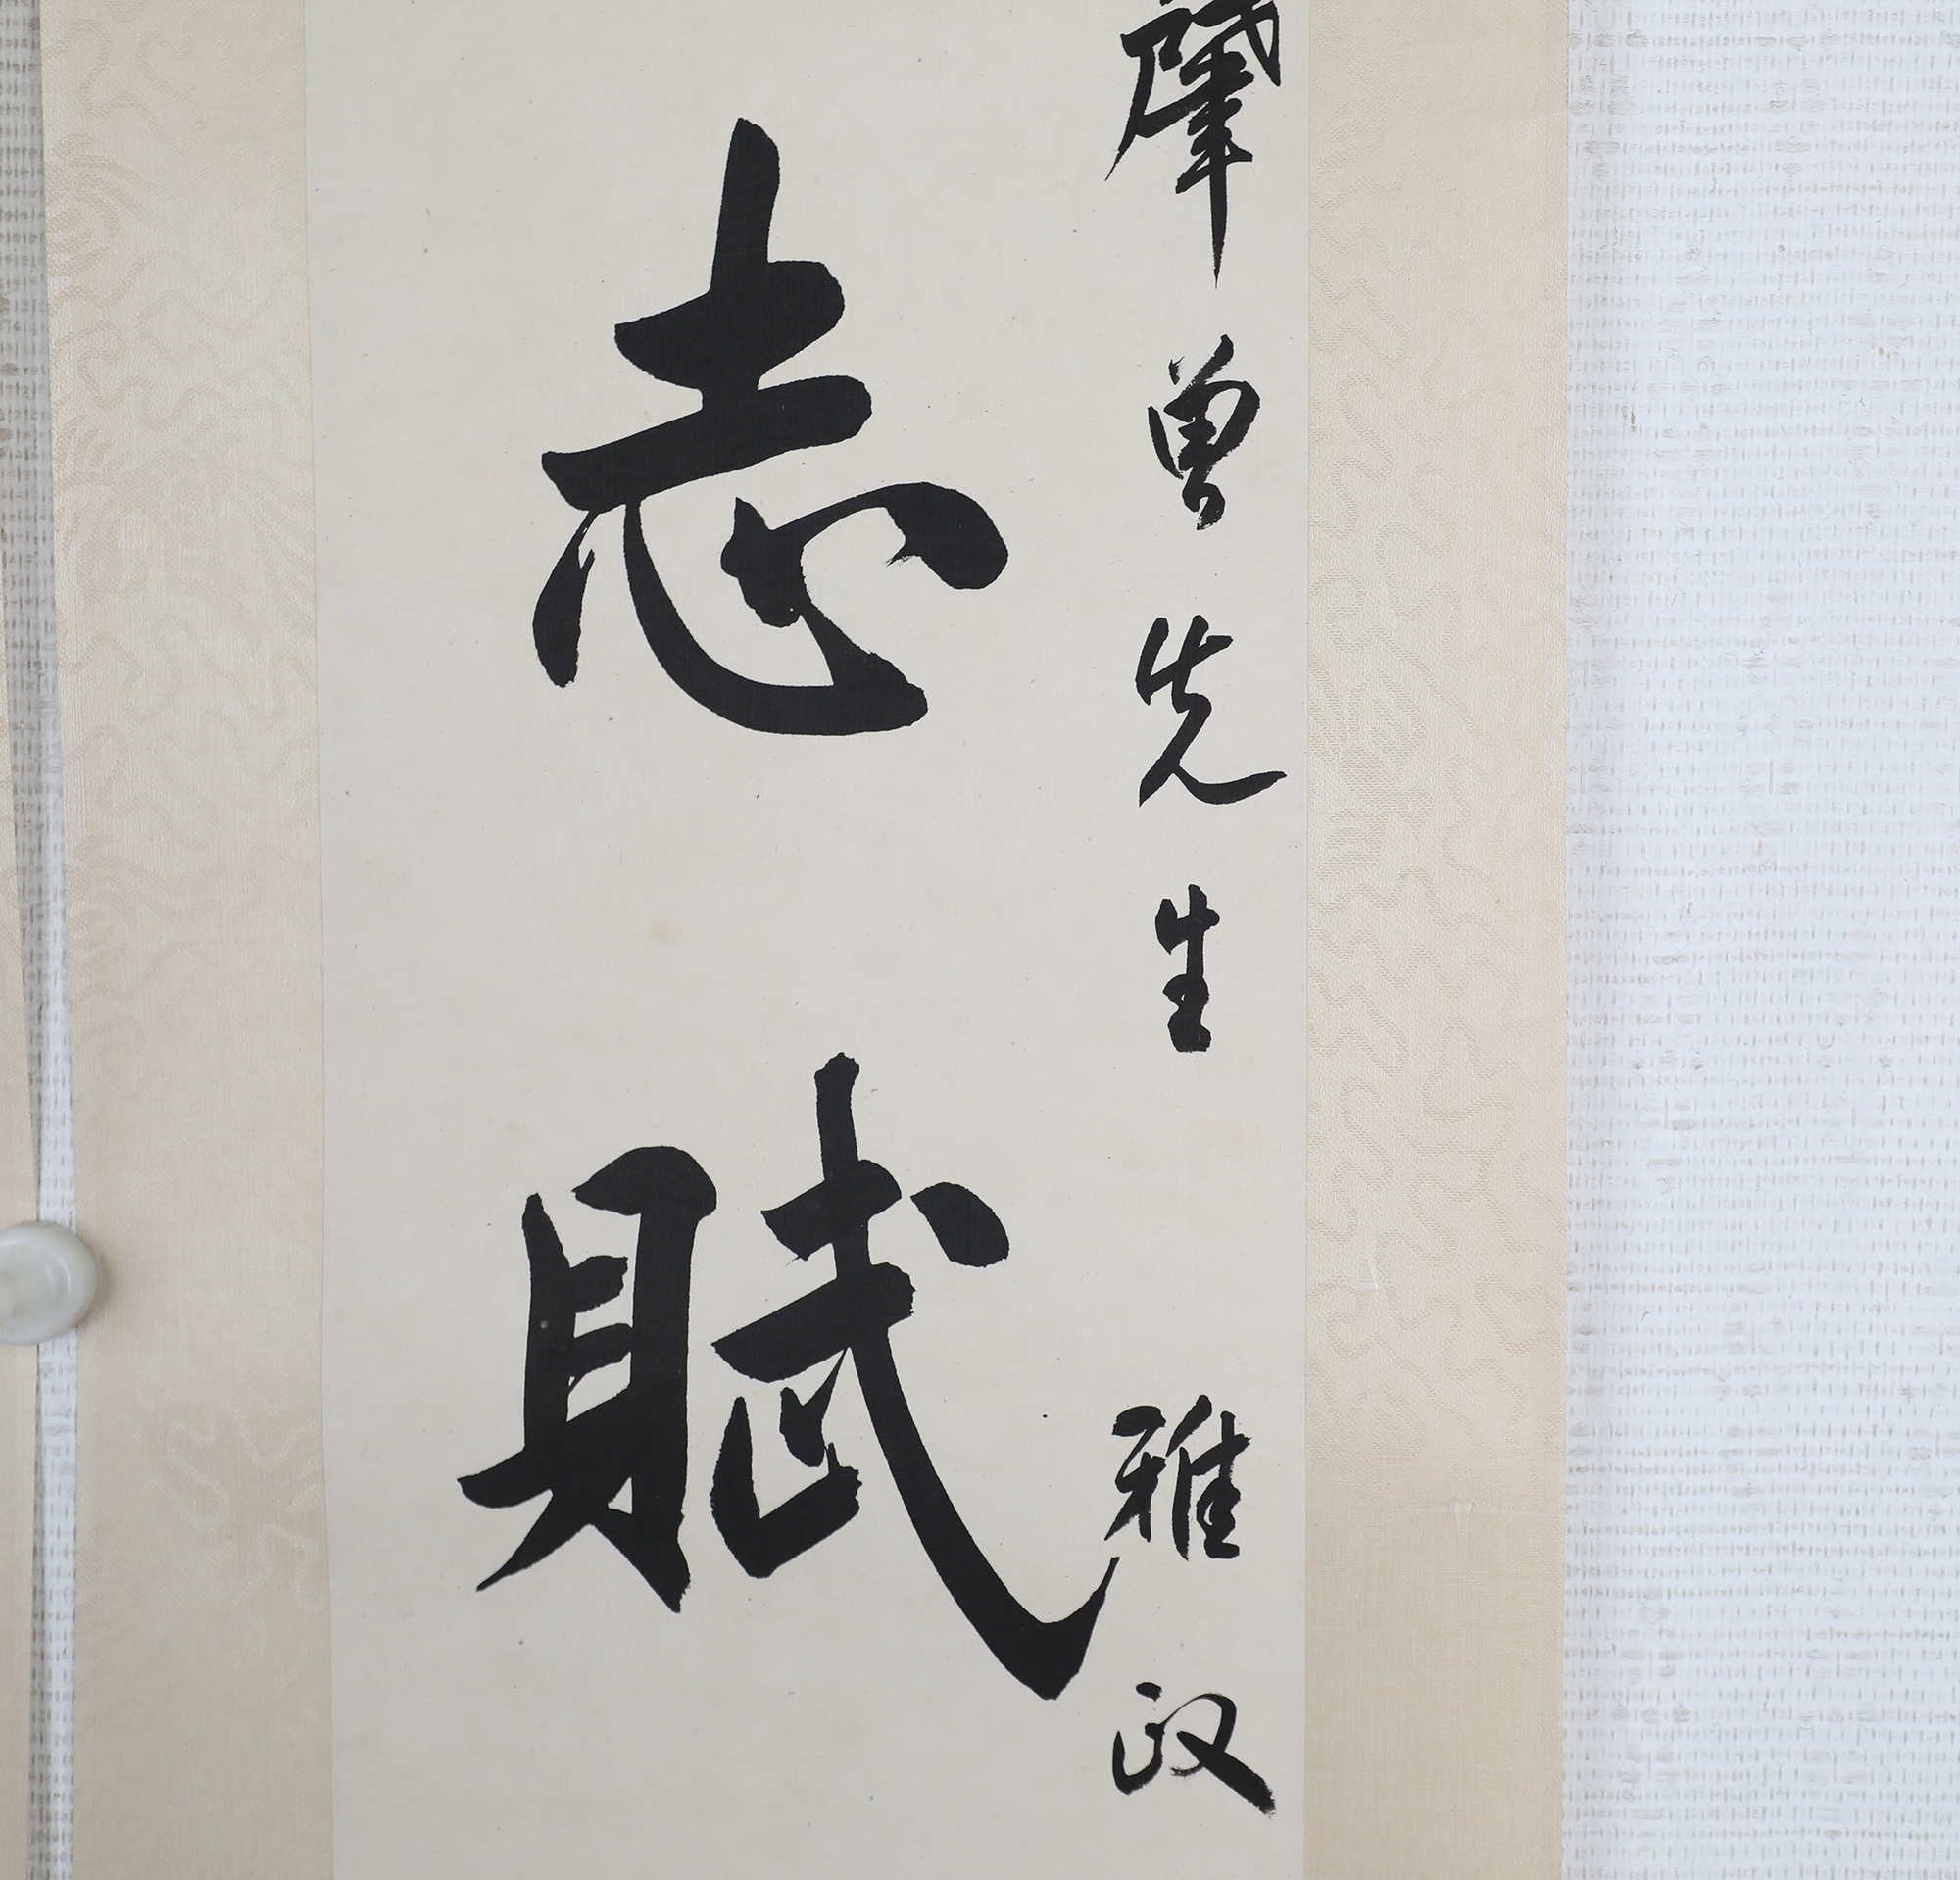 肇曾先生雅政
志賦